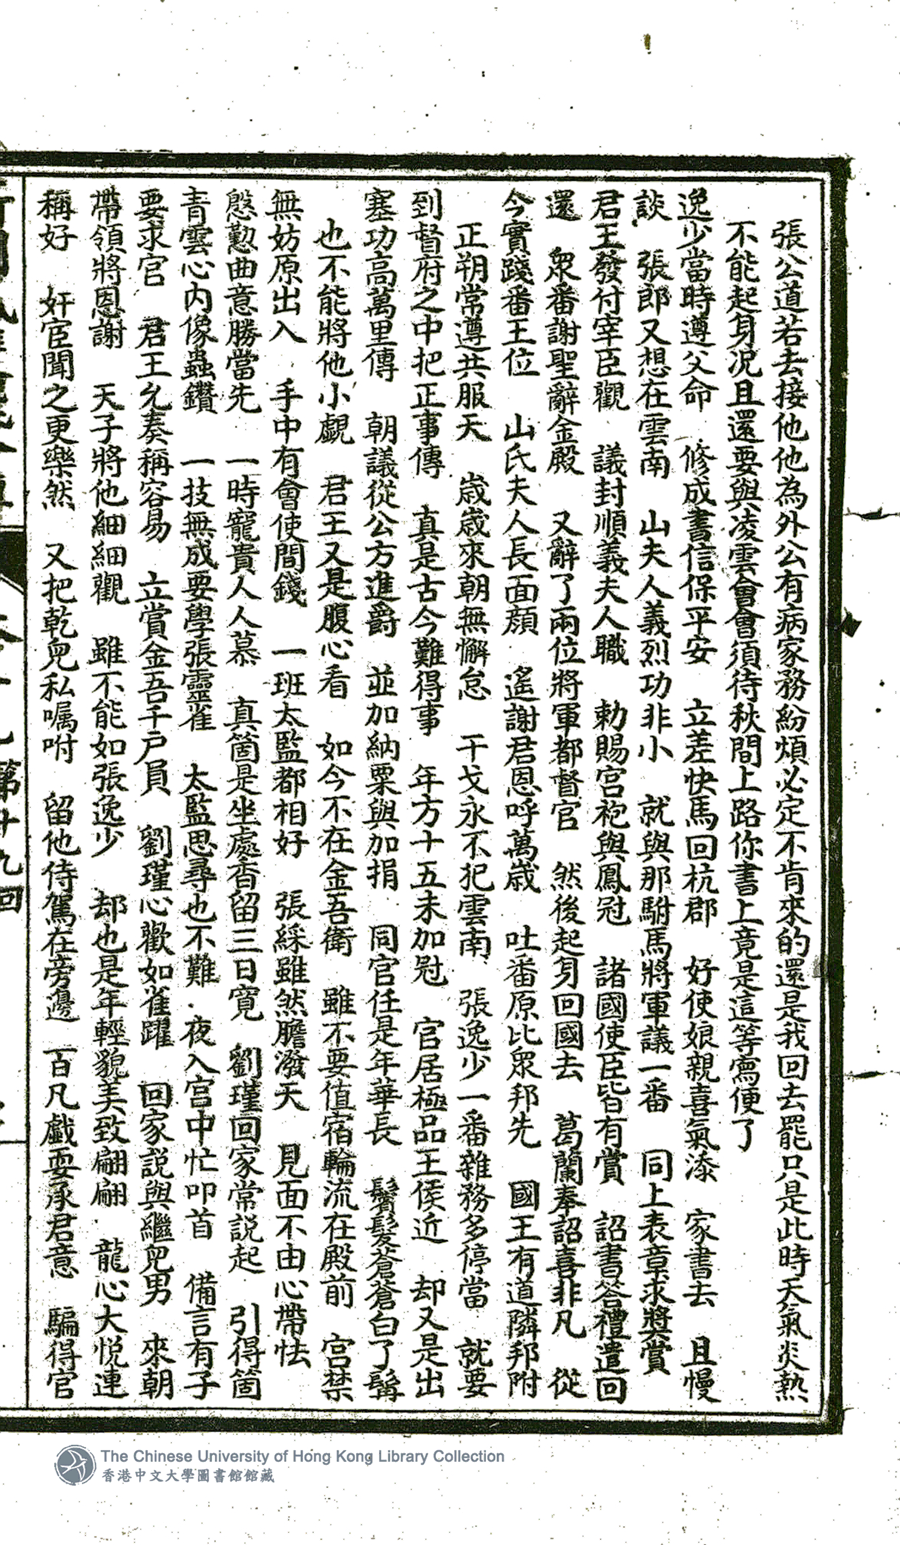 張公道若去接他他為外公有病家務紛煩必定不肯來的還是我回去罷只是此時天氣炎熱
不能起身況且還要與凌雲會會須待秋間上路你書上竟是這等寫便了
逸少當時遵父命　修成書信保平安　立差快馬回杭郡　好使娘親喜氣添　家書去　且慢
談　張郎又想在雲南　山夫人義烈功非小　就與那駙馬將軍議一番　同上表章求獎賞
君王發付宰臣觀　議封順義夫人職　勅賜宮袍與鳳冠　諸國使臣皆有賞　詔書答禮遣回
還　眾番謝聖辭金殿　又辭了兩位將軍都督官　然後起身回國去　葛蘭奉詔喜非凡　從
今實踐番王位　山氏夫人長面顏　遙謝君恩呼萬歲　吐番原比眾邦先　國王有道隣邦附
正朔常遵共服天　歲歲來朝無懈怠　干戈永不犯雲南　張逸少一番雜務多停當　就要
到督府之中把正事傳　真是古今難得事　年方十五未加冠　官居極品王侯近　却又是出
塞功高萬里傳　朝議從公方進爵　並加納粟與加捐　同官任是年華長　鬢髮蒼蒼白了髯
也不能將他小覷　君王又是腹心看　如今不在金吾衛　雖不要值宿輪流在殿前　宮禁
無妨原出入　手中有會使閒錢　一班太監都相好　張綵雖然膽潑天　見面不由心帶怯
慇懃曲意勝當先　一時寵貴人人慕　真箇是坐處香留三日寬　劉瑾回家常說起　引得箇
青雲心內像蟲鑽　一技無成要學張靈雀　太監思尋也不難　夜入宮中忙叩首　備言有子
要求官　君王允奏稱容易　立賞金吾千戶員　劉瑾心歡如雀躍　回家說與繼兒男　來朝
帶領將恩謝　天子將他細細觀　雖不能如張逸少　却也是年輕貌美致翩翩　龍心大悅連
稱好　奸宦聞之更樂然　又把乾兒私嘱咐　留他侍駕在旁邊　百凡戲耍承君意　騙得官
第廿九回
The Chinese University of Hong Kong Library Collection
香港中文大學圖書館館藏